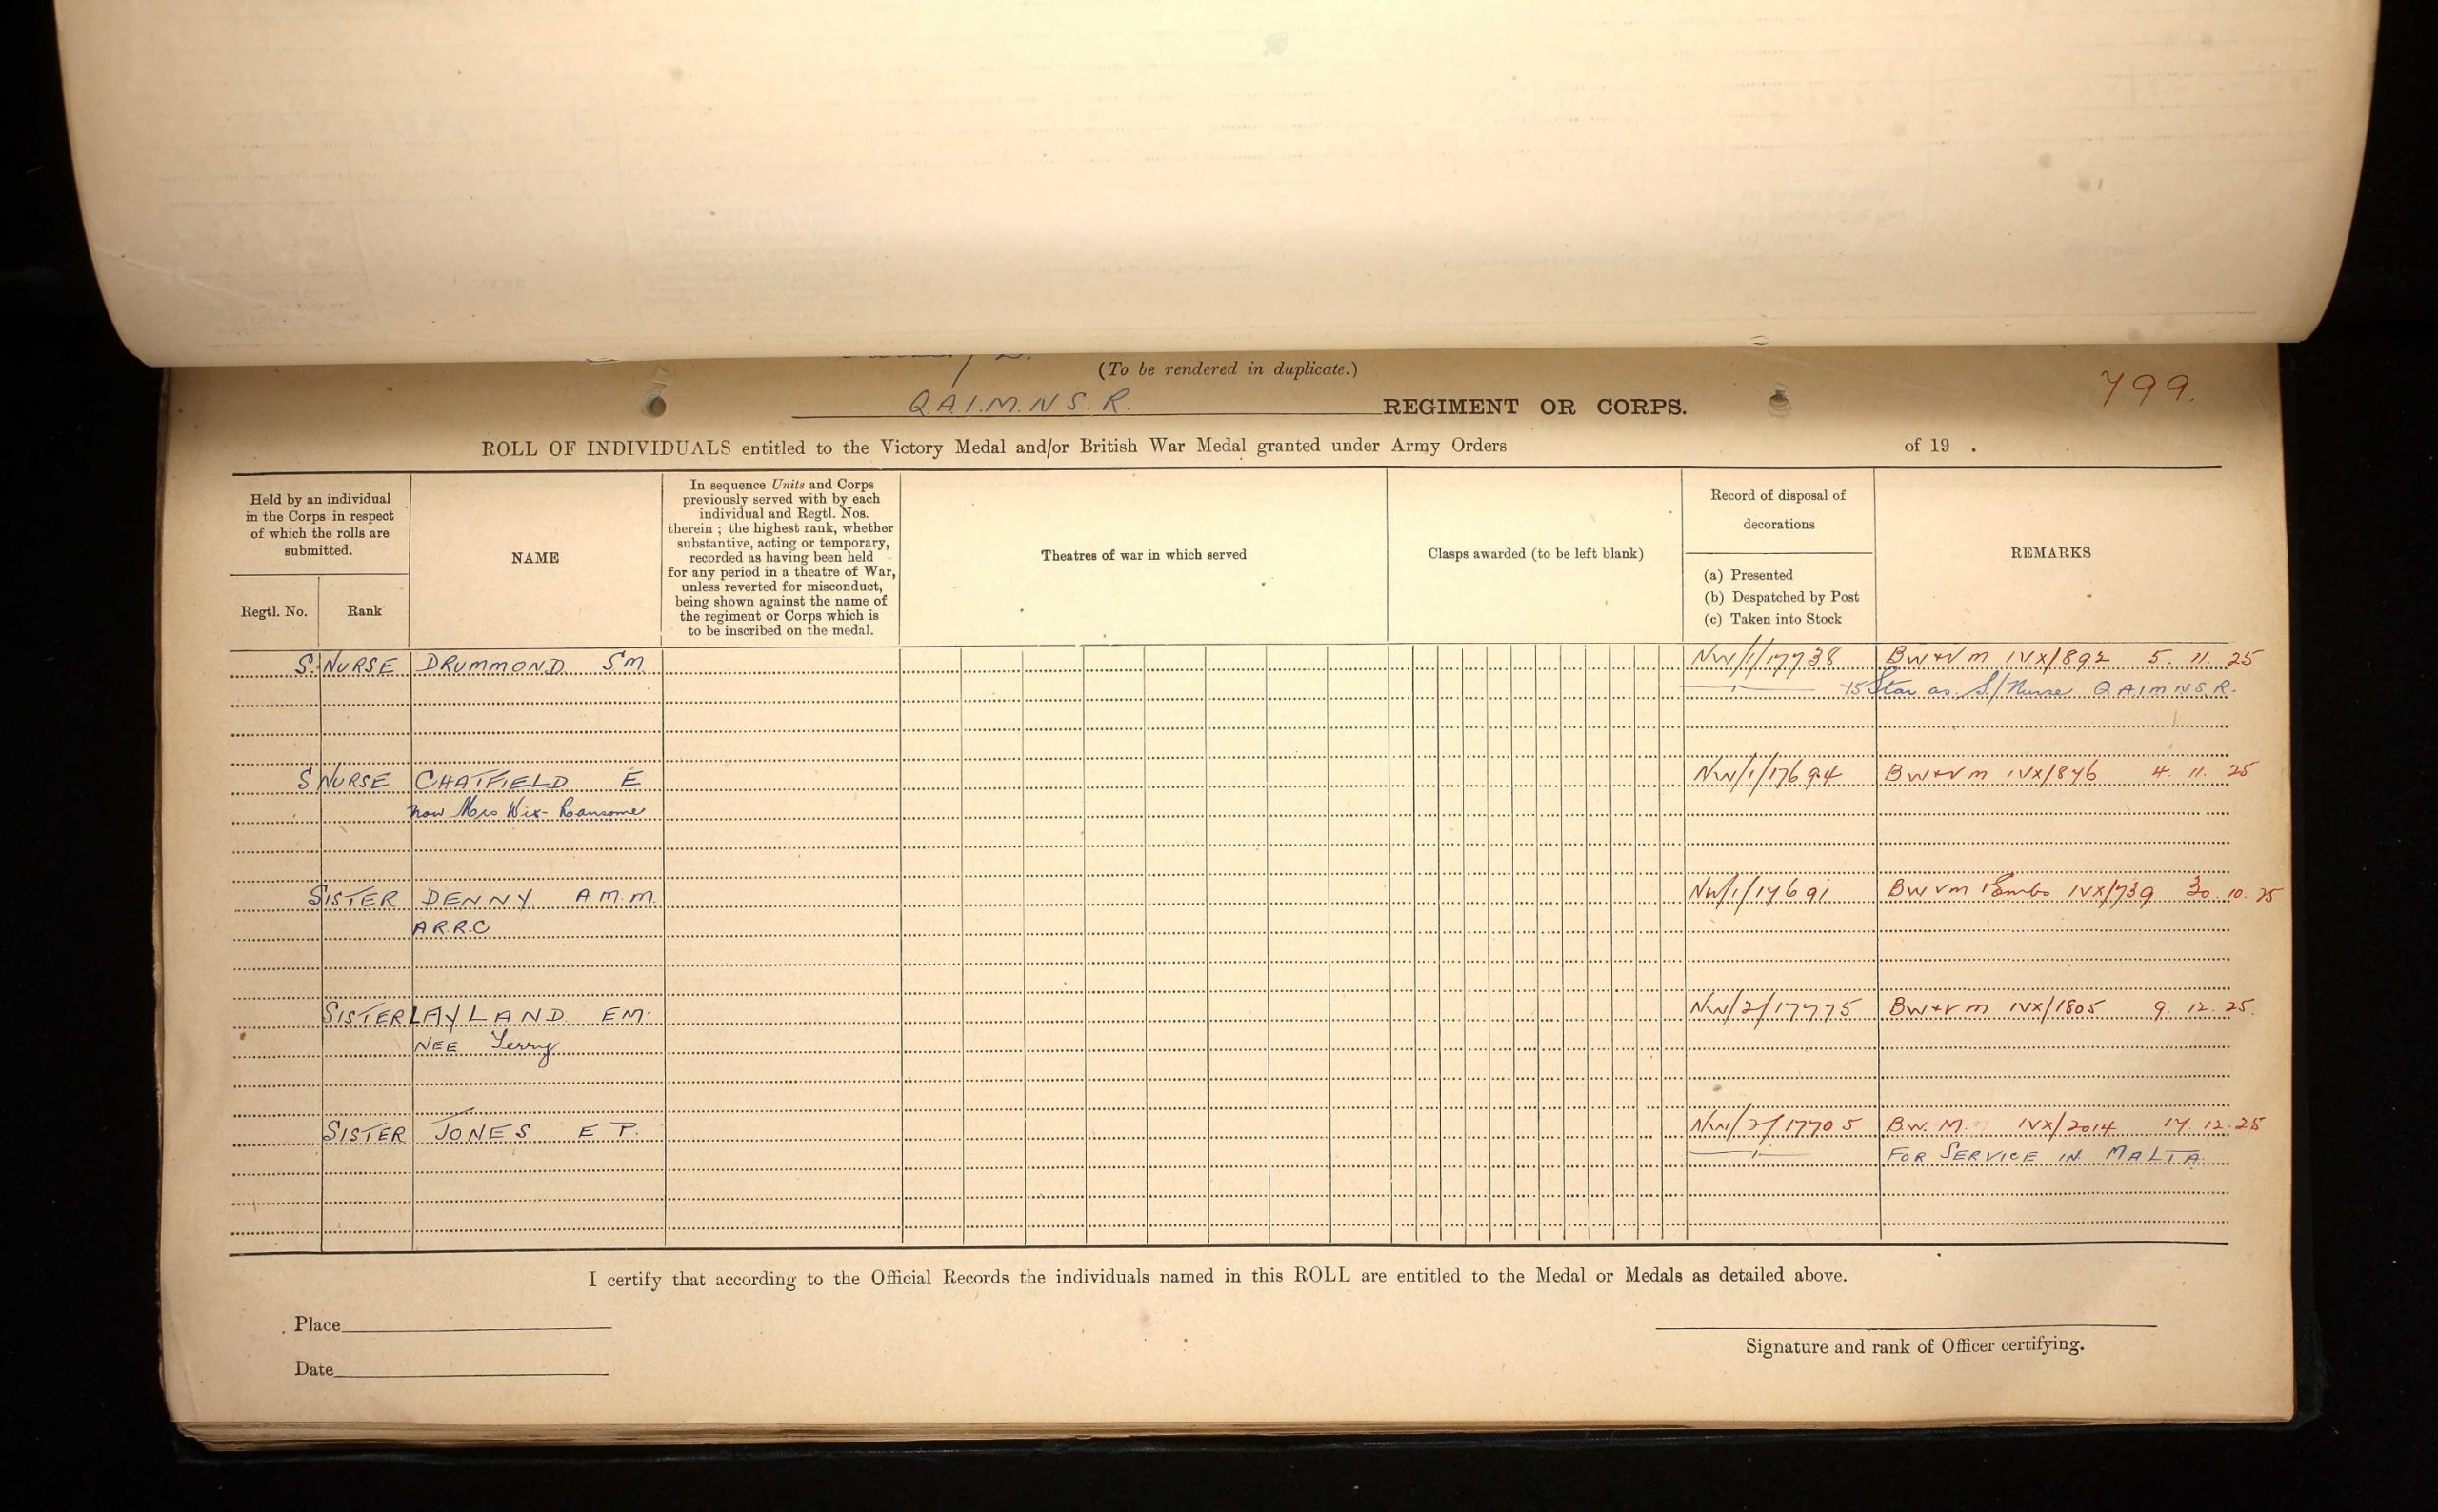 (To be rendered in duplicate.)
799.
Q.A.I.M.N.S.R. REGIMENT OR CORPS.
ROLL OF INDIVIDUALS entitled to the Victory Medal and/or British War Medal granted under Army Orders of 19 .
Held by an individual in the Corps in respect of which the rolls are submitted.
Regtl. No.
Rank
NAME
In sequence Units and Corps previously served with by each individual and Regtl. Nos. therein ; the highest rank, whether substantive, acting or temporary, recorded as having been held for any period in a theatre of War, unless reverted for misconduct, being shown against the name of the regiment or Corps which is to be inscribed on the medal.
Theatres of war in which served
Clasps awarded (to be left blank)
Record of disposal of decorations
(a) Presented
(b) Despatched by Post
(c) Taken into Stock
REMARKS
S. NURSE DRUMMOND SM NW/1/17738 BW+VM IVX/892 5. 11. 25
15 Star as S/Nurse QAIMNSR.
S NURSE CHATFIELD E NW/1/17694 BW+VM IVX/876 4. 11. 25
now Mrs Wix-Ransome
SISTER DENNY A.M.M. NW/1/17691 BW VM IVX/739 30.10.25
A.R.R.C
SISTER LAYLAND EM. NW/2/17775 BW+VM IVX/1805 9. 12. 25.
NEE Terry
SISTER JONES E P. NW/2/17705 B.W.M. IVX/2014 17.12.25
FOR SERVICE IN MALTA
I certify that according to the Official Records the individuals named in this ROLL are entitled to the Medal or Medals as detailed above.
Place
Signature and rank of Officer certifying.
Date